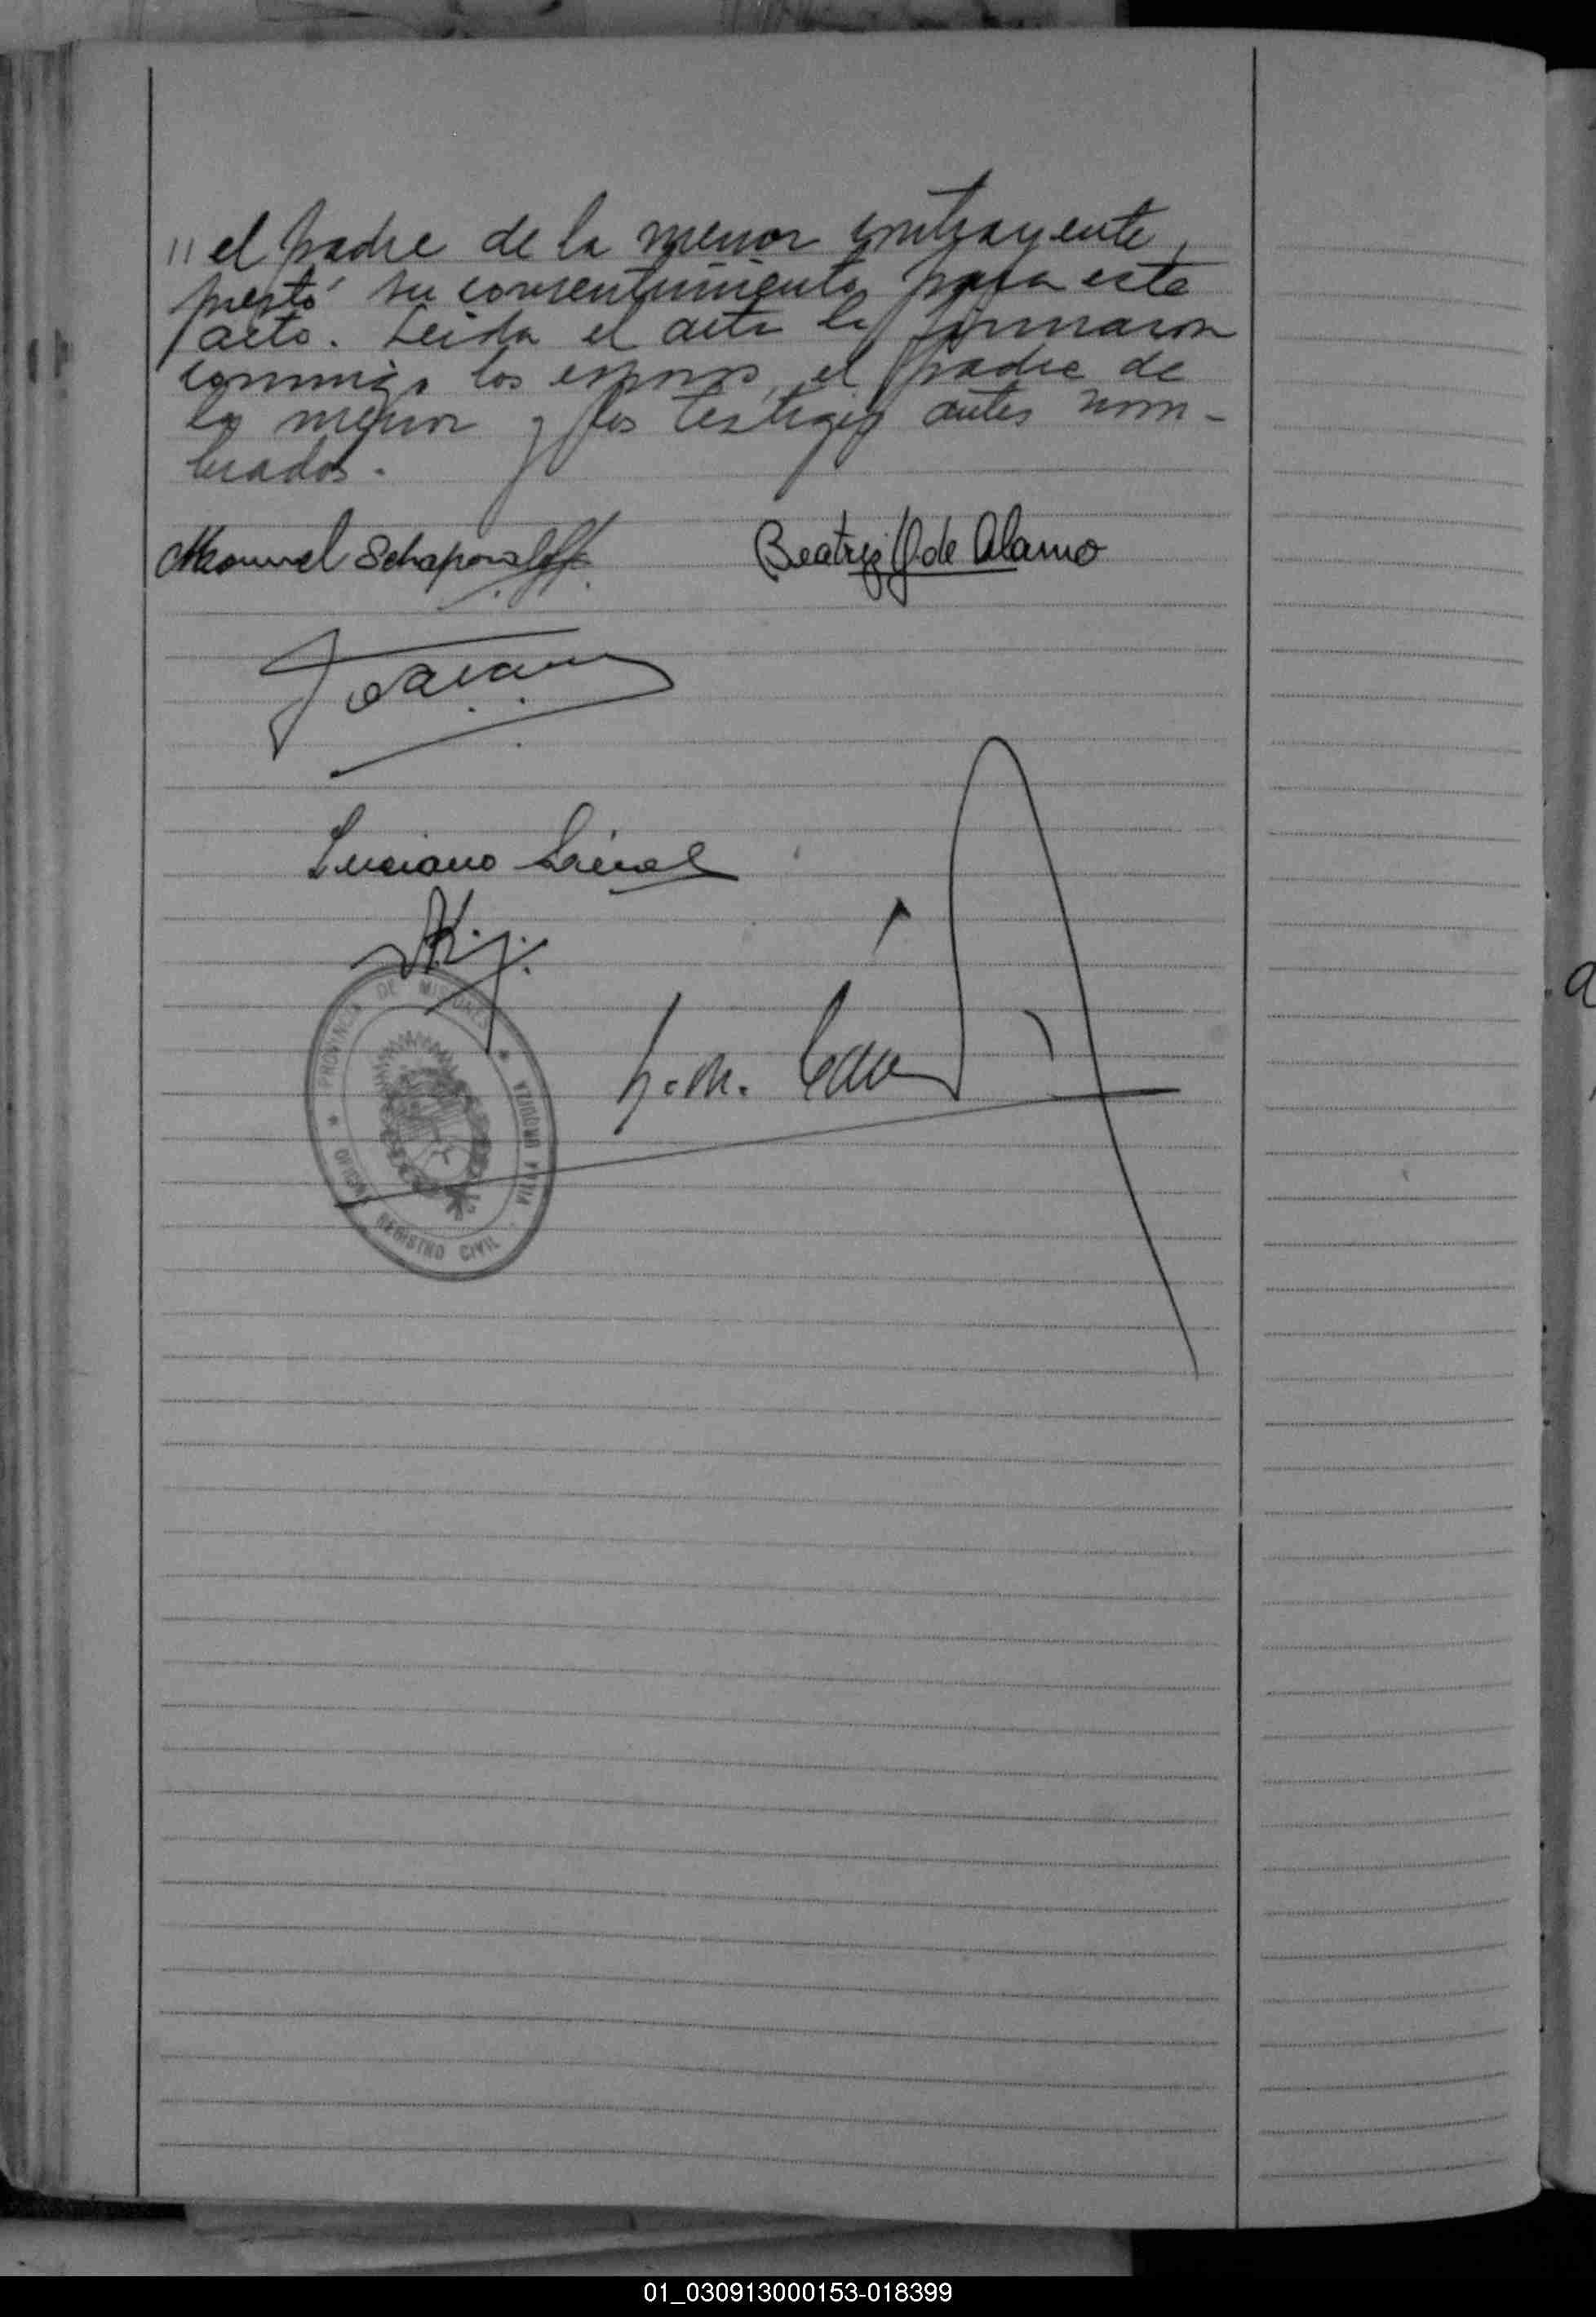 " el padre de la menor contrayente,
prestó su consentimiento para este
acto. Leida el acta la firmaron
conmigo los esposos, el padre de
la menor y los testigos antes nom-
brados.
Manuel Beatriz de Alamo
Luciano
PROVINCIA DE MISIONES
OFICINA REGISTRO CIVIL
01_030913000153-018399